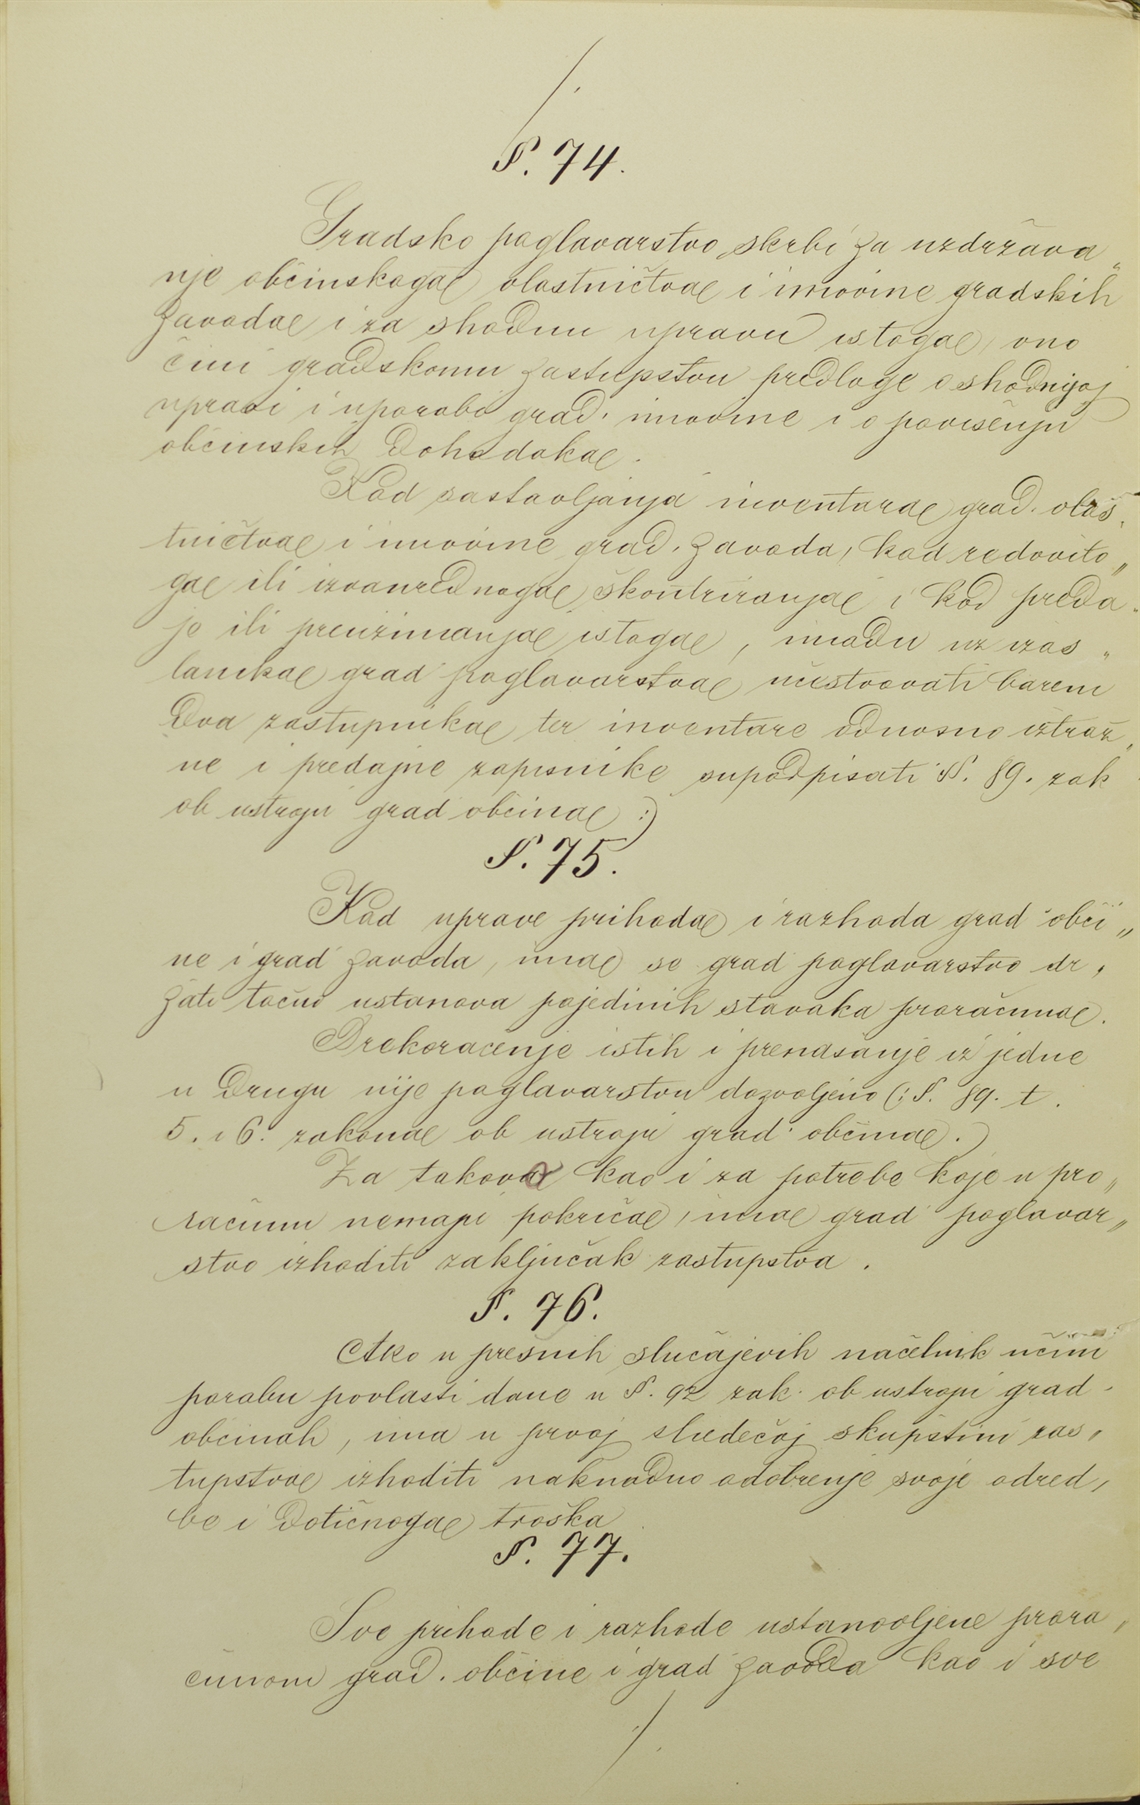 §. 74.
Gradsko poglavarstvo skrbi za uzdržava„
nje občinskoga vlastničtva i imovine gradskih
zavoda i za shodnu upravu istoga, ono
čini gradskomu zastupstvu predloge o shodnijoj
upravi i uporabi grad. imovine i o povišenju
občinskih dohodaka.
Kod sastavljanja inventara grad. vlas„
tničtva i imovine grad. zavoda, kod redovito„
ga ili izvanrednoga škontriranja i kod preda„
je ili preuzimanja istoga, imadu uz izas„
lanika grad poglavarstva učestvovati barem
dva zastupnika ter inventare odnosno iztraž„
ne i predajne zapisnike supodpisati §. 89. zak
ob ustroju grad občina :)
§. 75.
Kod uprave prihoda i razhoda grad obći„
ne i grad zavoda, ima se grad poglavarstvo dr„
žati točno ustanova pojedinih stavaka proračuna.
Prekoračenje istih i prenašanje iz jedne
u drugu nije poglavarstvu dozvoljeno (: §. 89. t.
5. i 6. zakona ob ustroju grad. občina.)
Za takova kao i za potrebe koje u pro„
računu nemaju pokrića, ima grad poglavar„
stvo izhoditi zaključak zastupstva.
§. 76.
Ako u prešnih slučajevih načelnik učini
porabu povlasti dane u §. 92 zak. ob ustroju grad.
občinah, ima u prvoj sljedećoj skupštini zas„
tupstva izhoditi naknadno odobrenje svoje odred„
be i dotičnoga troška
§. 77.
Sve prihode i razhode ustanovljene prora„
čunom grad. občine i grad zavoda kao i sve